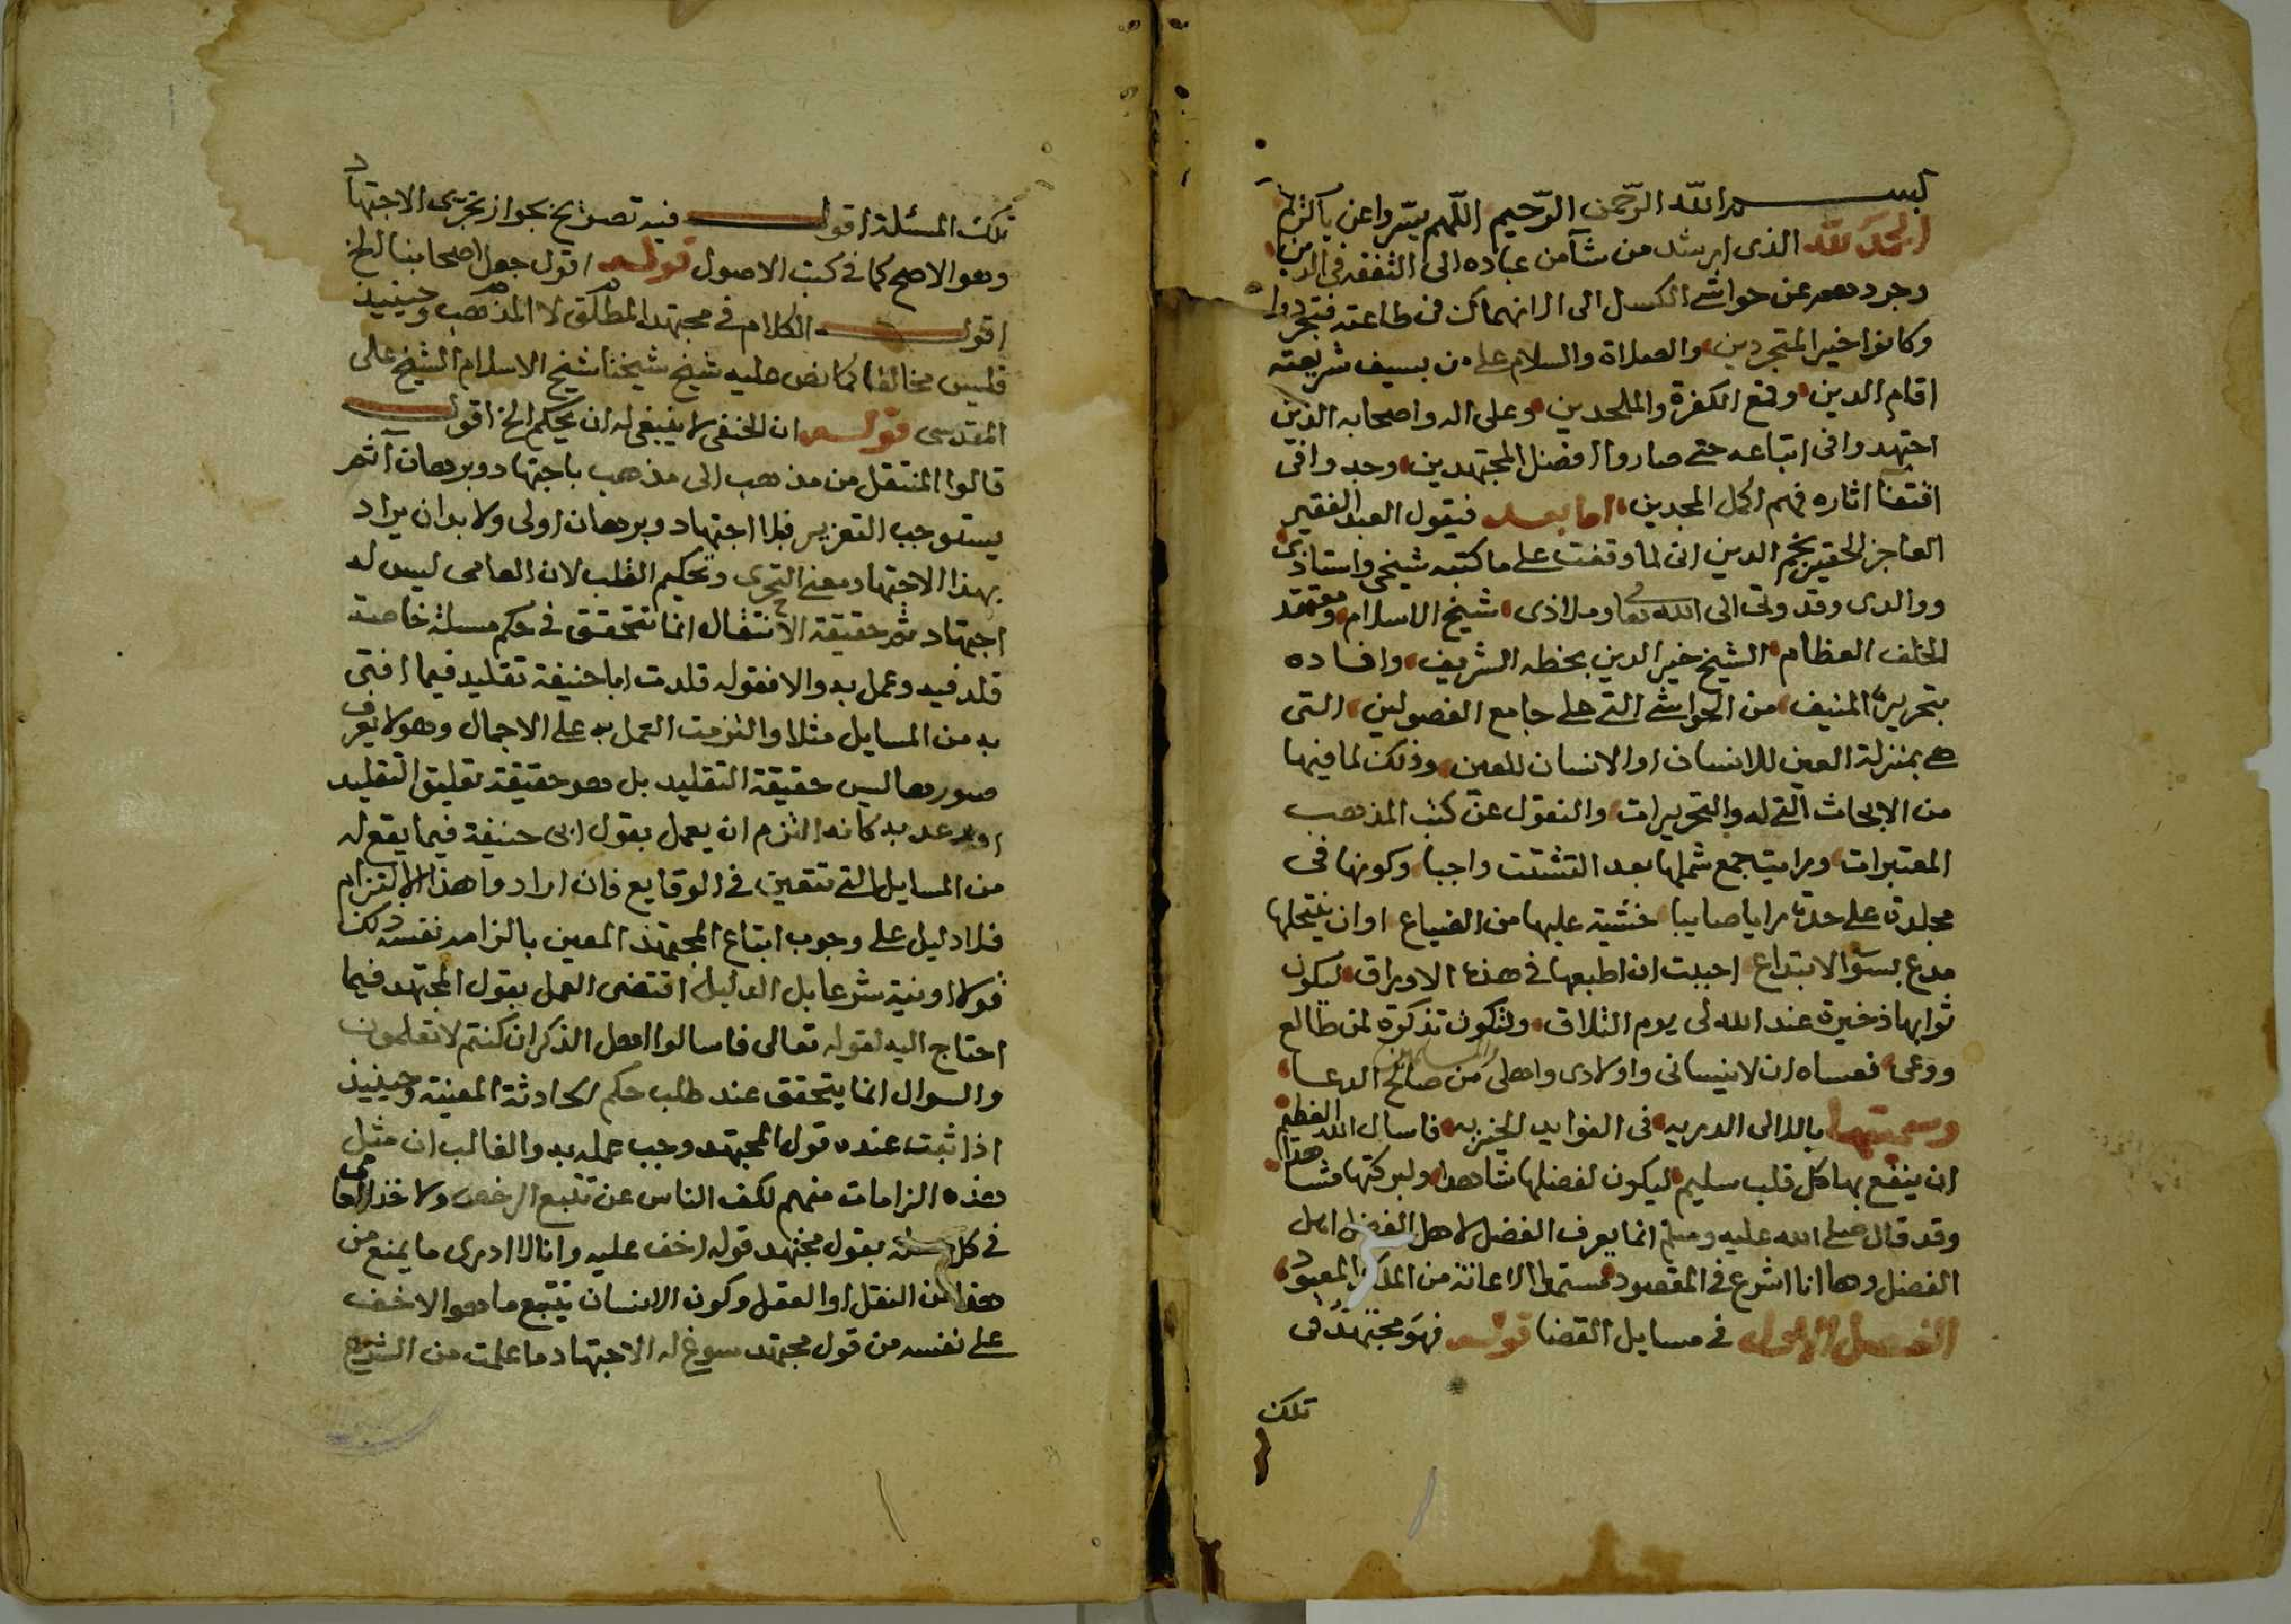 بسم الله الرحمن الرحيم اللهم يسر واعن ياكريم
الحمد لله الذى ارشد من شآ من عباده الى التفقه فى الدين
وجردهم عن حواشى الكسل الى الانهماك فى طاعته فتجردوا
وكانوا خير المتجردين والصلاة والسلام على من بسيف شريعته
اقام الدين وقمع الكفرة والملحدين وعلى اله واصحابه الذين
اجتهدوا فى اتباعه حتى صاروا افضل المجتهدين وجدوا فى
اقتفآ اثاره فهم اكمل المجدين اما بعد فيقول العبد الفقير
العاجز الحقير نجم الدين انى لما وقفت على ما كتبه شيخى واستاذى
ووالدى وقدوتى الى الله تعالى وملاذى شيخ الاسلام ومعتقد
الخلف العظام الشيخ خير الدين بخطه الشريف وافاده
بتحريره المنيف من الحواشى التى على جامع الفصولين التى
هى بمنزلة العين للانسان او الانسان للعين وذلك لما فيها
من الابحاث التى له والتحريرات والنقول عن كتب المذهب
المعتبرات ورايت جمع شملها بعد التشتت واجبا وكونها فى
مجلدة على حدة رايا صايبا خشية عليها من الضياع او ان ينتحلها
مدع بسوء الابتداع احببت ان اطبعها فى هذه الاوراق ليكون
ثوابها ذخيرة عند الله لى يوم التلاق ولتكون تذكرة لمن طالع
ووعى فعساه ان لا ينسانى واولادى واهلى والمسلمين من صالح الدعا
وسميتها باللالى الدريه فى الفوايد الخيريه فاسال الله العظيم
ان ينفع بها كل قلب سليم ليكون لفضلها شاهدا ولبركتها مشاهدا
وقد قال صلى الله عليه وسلم انما يعرف الفضل لاهل الفضل اهل
الفضل وها انا اشرع فى المقصود مستمدا الاعانة من الملك المعبود
الفصل الاول فى مسايل القضا قوله فهو مجتهد فى
تلك
تلك المسئلة اقول فيه تصريح بجواز تجزى الاجتهاد
وهو الاصح كما فى كتب الاصول قوله اقول جعل اصحابنا الخ
اقول الكلام فى مجتهد المطلق لا المذهب وحينيذ
فليس مخالفا كما نص عليه شيخ شيخنا شيخ الاسلام الشيخ على
المقدسى قوله ان الحنفى لا ينبغى له ان يحكم الخ اقول
قالوا المنتقل من مذهب الى مذهب باجتهاد وبرهان آثم
يستوجب التعزير فبلا اجتهاد وبرهان اولى ولا بد ان يراد
بهذا الاجتهاد معنى التحرى وتحكيم القلب لان العامى ليس له
اجتهاد ثم حقيقة الانتقال انما تتحقق فى حكم مسئلة خاصة
قلد فيه وعمل به والا فقوله قلدت ابا حنيفة تقليد فيما افتى
به من المسايل مثلا والتزمت العمل به على الاجمال وهو لا يعرف
صورها ليس حقيقة التقليد بل هو حقيقة تعليق التقليد
او وعد به كانه التزم ان يعمل بقول ابى حنيفة فيما يقع له
من المسايل التى تتعين فى الوقايع فان ارادوا هذا الالتزام
فلا دليل على وجوب اتباع المجتهد المعين بالزامه نفسه ذلك
قولا او نية شرعا بل الدليل اقتضى العمل بقول المجتهد فيما
احتاج اليه لقوله تعالى فاسالوا اهل الذكر ان كنتم لا تعلمون
والسوال انما يتحقق عند طلب حكم الحادثة المعينة وحينيذ
اذا ثبت عنده قول المجتهد وجب عمله به والغالب ان مثل
هذه الزامات منهم لكف الناس عن تتبع الرخص ولاخذ العامى
فى كل مسئلة بقول مجتهد قوله اخف عليه وانا لا ادرى ما يمنع من
هذا من النقل او العقل وكون الانسان يتتبع ما هو الاخف
على نفسه من قول مجتهد سوغ له الاجتهاد ما علمت من الشرع